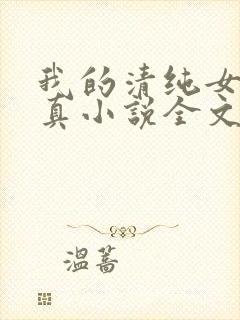 我的清纯女
真小说全文
温蕎